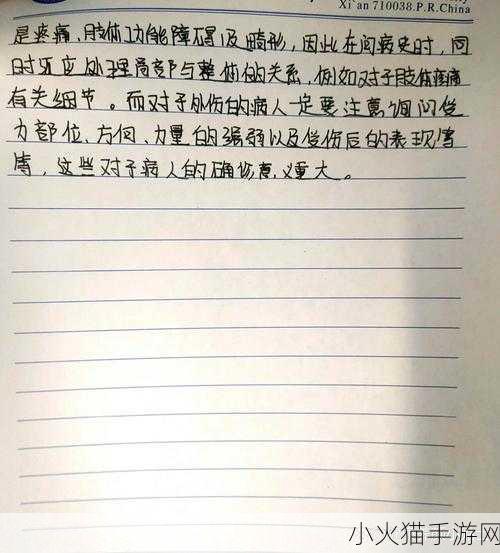 Xi'an 710038.P.R.China
是疼痛、肢体功能障碍及畸形,因此在问病史时,同
时还应处理局部与整体的关系,例如对于肢体疼痛
有关细节。而对于外伤的病人一定要注意询问受
力部位、方向、力量的强弱以及受伤后的表现情
,这些对于病人的确伤意义重大。
小火猫手游网